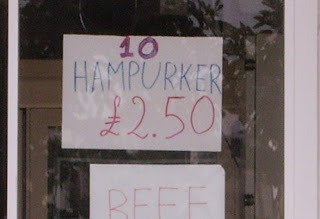 10
HAMPURKER
£2.50
BEEF